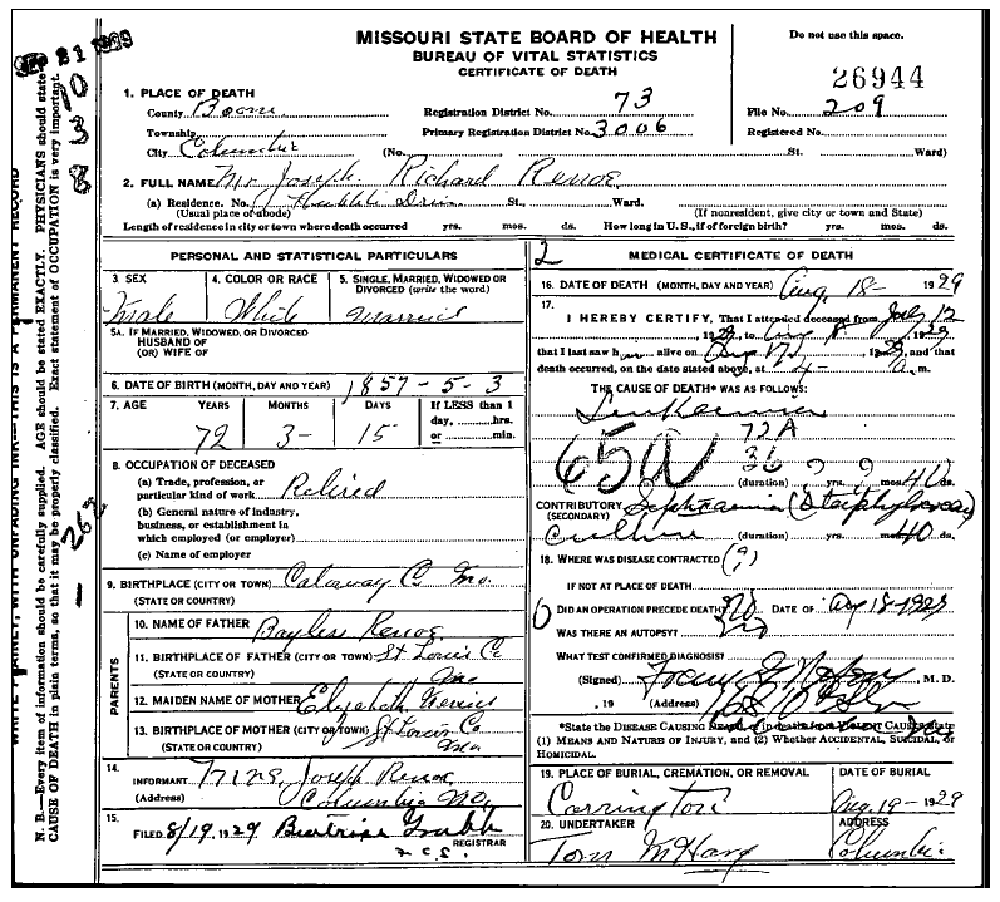 MISSOURI STATE BOARD OF HEALTH
BUREAU OF VITAL STATISTICS
CERTIFICATE OF DEATH
Do not use this space.
26944
1. PLACE OF DEATH
County Boone Registration District No. 73 File No. 209
Township Primary Registration District No. 3006 Registered No.
City Columbia (No. St. Ward)
2. FULL NAME Mr Joseph Richard Renoe
(a) Residence. No. St. Ward.
(Usual place of abode) (If nonresident, give city or town and State)
Length of residence in city or town where death occurred yrs. mos. ds. How long in U.S., if of foreign birth? yrs. mos. ds.
PERSONAL AND STATISTICAL PARTICULARS
3. SEX 4. COLOR OR RACE 5. SINGLE, MARRIED, WIDOWED OR
DIVORCED (write the word)
Male White Married
5A. IF MARRIED, WIDOWED, OR DIVORCED
HUSBAND OF
(OR) WIFE OF
6. DATE OF BIRTH (MONTH, DAY AND YEAR) 1857-5-3
7. AGE YEARS MONTHS DAYS If LESS than 1
day, hrs.
72 3- 15 or min.
8. OCCUPATION OF DECEASED
(a) Trade, profession, or
particular kind of work Retired
(b) General nature of industry,
business, or establishment in
which employed (or employer)
(c) Name of employer
9. BIRTHPLACE (CITY OR TOWN) Calaway C Mo.
(STATE OR COUNTRY)
PARENTS
10. NAME OF FATHER Bayless Renoe
11. BIRTHPLACE OF FATHER (CITY OR TOWN) St Louis Co
(STATE OR COUNTRY) Mo
12. MAIDEN NAME OF MOTHER Elizabeth
13. BIRTHPLACE OF MOTHER (CITY OR TOWN) St Louis Co
(STATE OR COUNTRY) Mo
14.
INFORMANT Mrs. Joseph Renoe
(Address) Columbia Mo
15.
FILED 8/19, 1929
REGISTRAR
2
MEDICAL CERTIFICATE OF DEATH
16. DATE OF DEATH (MONTH, DAY AND YEAR) Aug. 18- 1929
17.
I HEREBY CERTIFY, That I attended deceased from July 12
1929, to Aug 8 1929
that I last saw h m alive on Aug 17, 1929, and that
death occurred, on the date stated above, at 4- a.m.
THE CAUSE OF DEATH* WAS AS FOLLOWS:
Leukemia
72A
65A
36
(duration) yrs. mos. 40 ds.
CONTRIBUTORY
(SECONDARY)
Culture (duration) yrs. mos. 40 ds.
18. WHERE WAS DISEASE CONTRACTED (?)
IF NOT AT PLACE OF DEATH
DID AN OPERATION PRECEDE DEATH? No DATE OF Aug 18-1929
WAS THERE AN AUTOPSY? No
WHAT TEST CONFIRMED DIAGNOSIS?
(Signed) , M. D.
, 19 (Address)
*State the DISEASE CAUSING DEATH, or in deaths from VIOLENT CAUSES, state
(1) MEANS AND NATURE OF INJURY, and (2) Whether ACCIDENTAL, SUICIDAL, or
HOMICIDAL.
19. PLACE OF BURIAL, CREMATION, OR REMOVAL DATE OF BURIAL
Carrington Aug. 19-1929
20. UNDERTAKER ADDRESS
Tom McHarg Columbia
WRITE PLAINLY, WITH UNFADING INK—THIS IS A PERMANENT RECORD
N. B.—Every item of information should be carefully supplied. AGE should be stated EXACTLY. PHYSICIANS should state
CAUSE OF DEATH in plain terms, so that it may be properly classified. Exact statement of OCCUPATION is very important.
SEP 21 1929
10
3
8
- 262